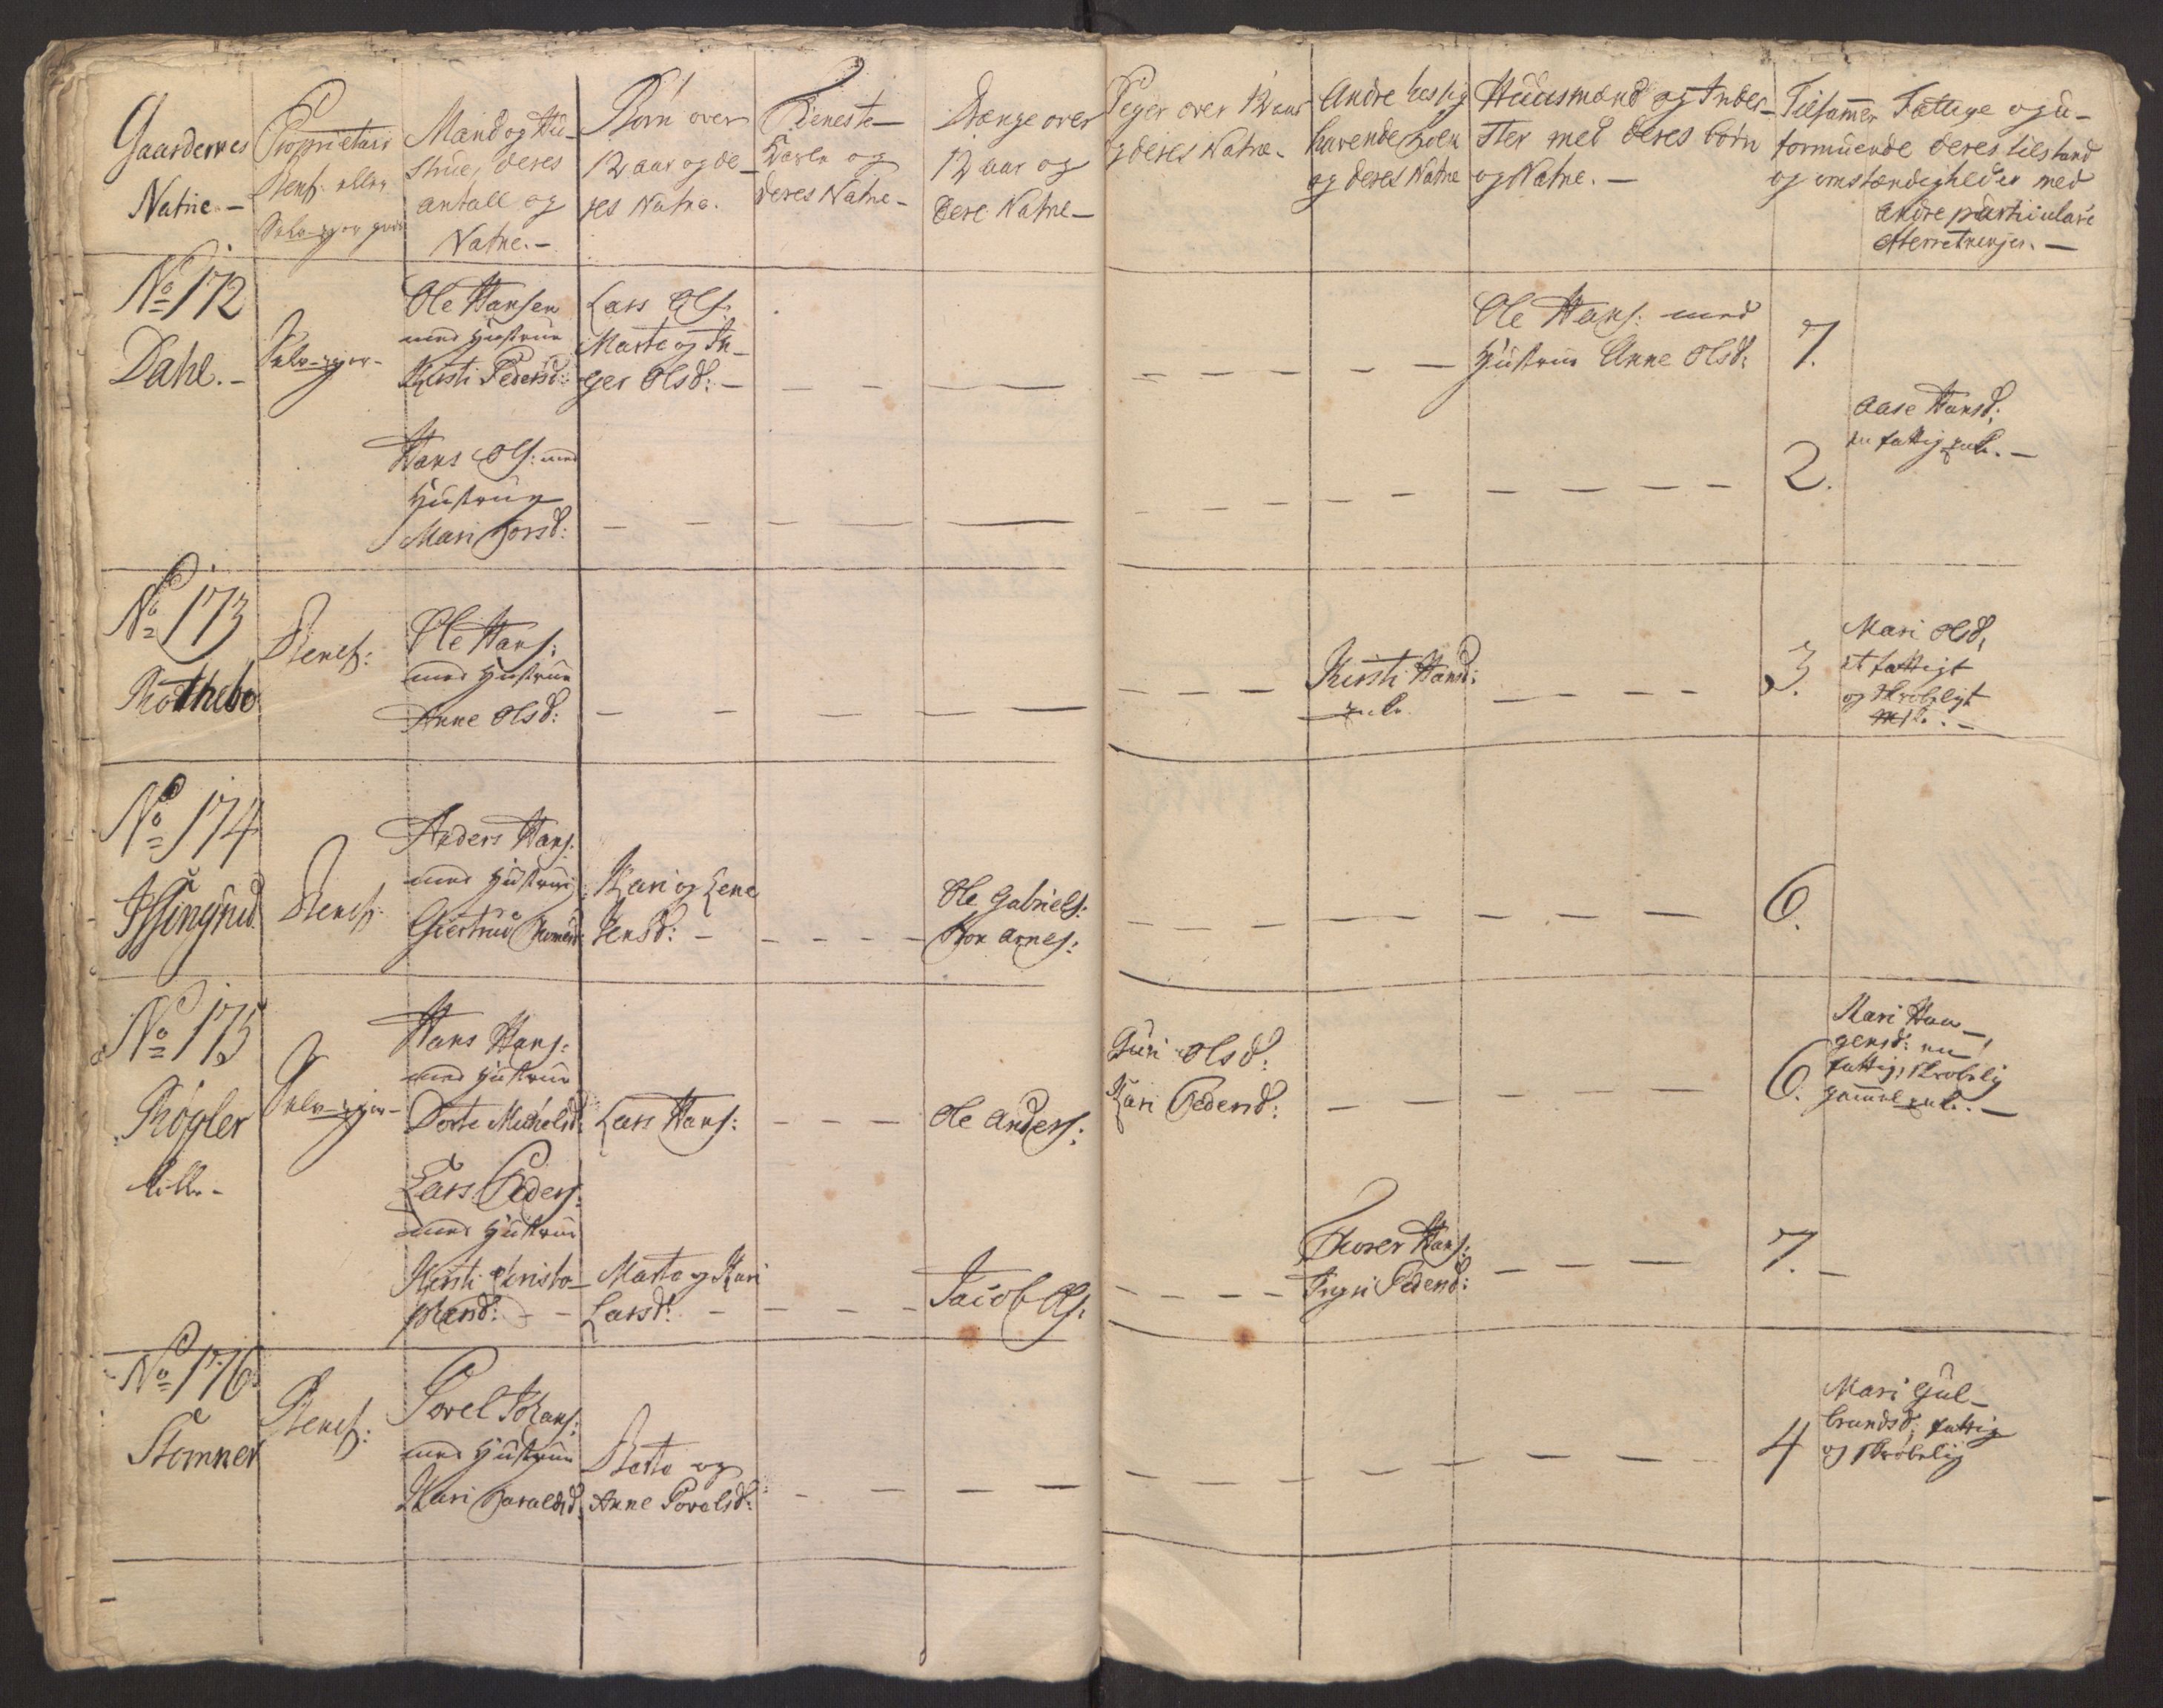 Gaardernes
Natne.-
Proprietair
Benef. eller
Selv-eyer
Mand og Hu-
strue, deres
antall og
Natne.-
Børn over
12 aar og de-
res Natne.
Tieneste-
Karle og
deres Natne-
Drænge over
12 aar og
dere Natne-
Piger over 12 aar
og deres Natne-
Andre hos sig
havende folk
og deres Natne
Huusmænd og Inder-
ster med deres børn
og Natne.-
Tilsamen Fattige og u-
formuende deres tilstand
og omstændigheder med
andre particulaire
efterretninger.-
No 172
Dahl.-
Selv-eyer-
Ole Hansen
med Hustrue
Kirsti Pedersd:
Lars Ols:
Marte og In-
ger Olsd:-
Ole Hans: med
Hustrue Anne Olsd:
7.
Hans Ols: med
Hustrue
Mari
2.
Aase Hansd:
en fattig enke.-
No 173
Rothebo
Benef:
Ole Hans:
med Hustrue
Anne Olsd:
Kirsti Hansd:
enke
3.
Mari Olsd,
et fattigt
og skrøbeligt
No 174
Benef:
Anders Hans:
med Hustrue
Giertrud
Kari og Lene
Jensd:-
Ole Gabriels:
Jon Arnes:
6.
No 175
Røgler
lille-
Selv-eyer-
Hans Hans:
med Hustrue
Dorte Michelsd:
Lars Hans:
Ole Anders:
Guri Olsd:
Kari Pedersd:
6.
Mari Haa-
gensd: en
fattig, skrøbelig
gammel enke.-
Lars Peders:
med Hustrue
Kirsti Christo-
phersd:
Marte og Kari
Larsd:
Jacob Ols:
Thorer Hans:
Pedersd:
7.
No 176
Stomner
Benef:
Povel Hans:
med Hustrue
Kari Haraldsd:
Berte og
Anne Povelsd:
4
Mari Gul-
brandsd: fattig
og skrøbelig